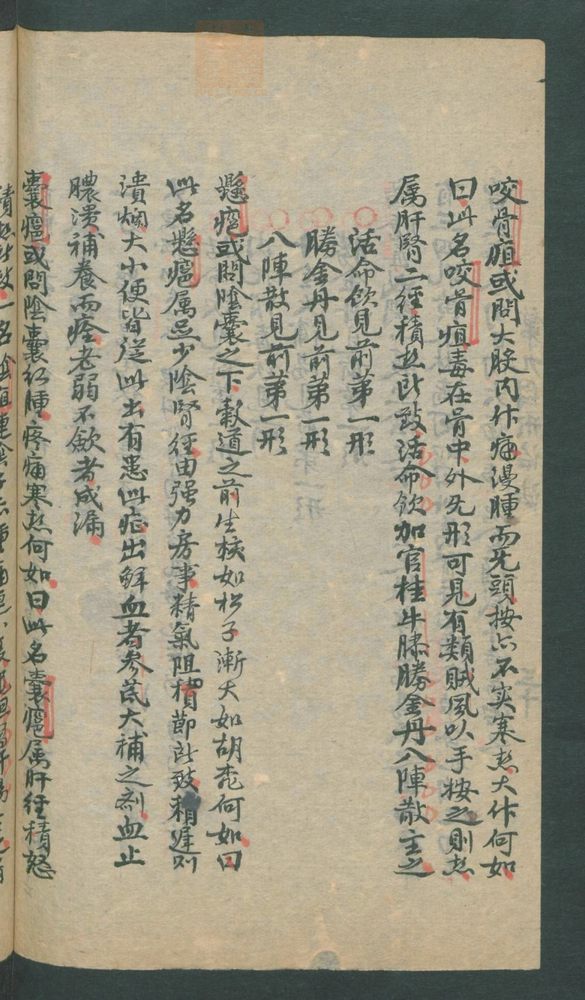 咬骨疽或問大股內作痛漫腫而无頭按亦不实寒热大作何如
曰此名咬骨疽毒在骨中外无形可見有類賊風以手按之則热
属肝腎二經積热所致活命飲加官桂牛膝勝金丹八陣散主之
活命飲見前第一形
勝金丹見前第一形
八陣散見前第一形
懸癰或問陰囊之下穀道之前生核如松子漸大如胡桃何如曰
此名懸癰属足少陰腎經由强力房事精氣阻積節所致稍遲則
潰爛大小便皆從此出有患此症出鮮血者参芪大補之剤血止
膿潰補養而痊老弱不飲者成漏
囊癰或問陰囊红腫疼痛寒热何如曰此名囊癰属肝經積怒